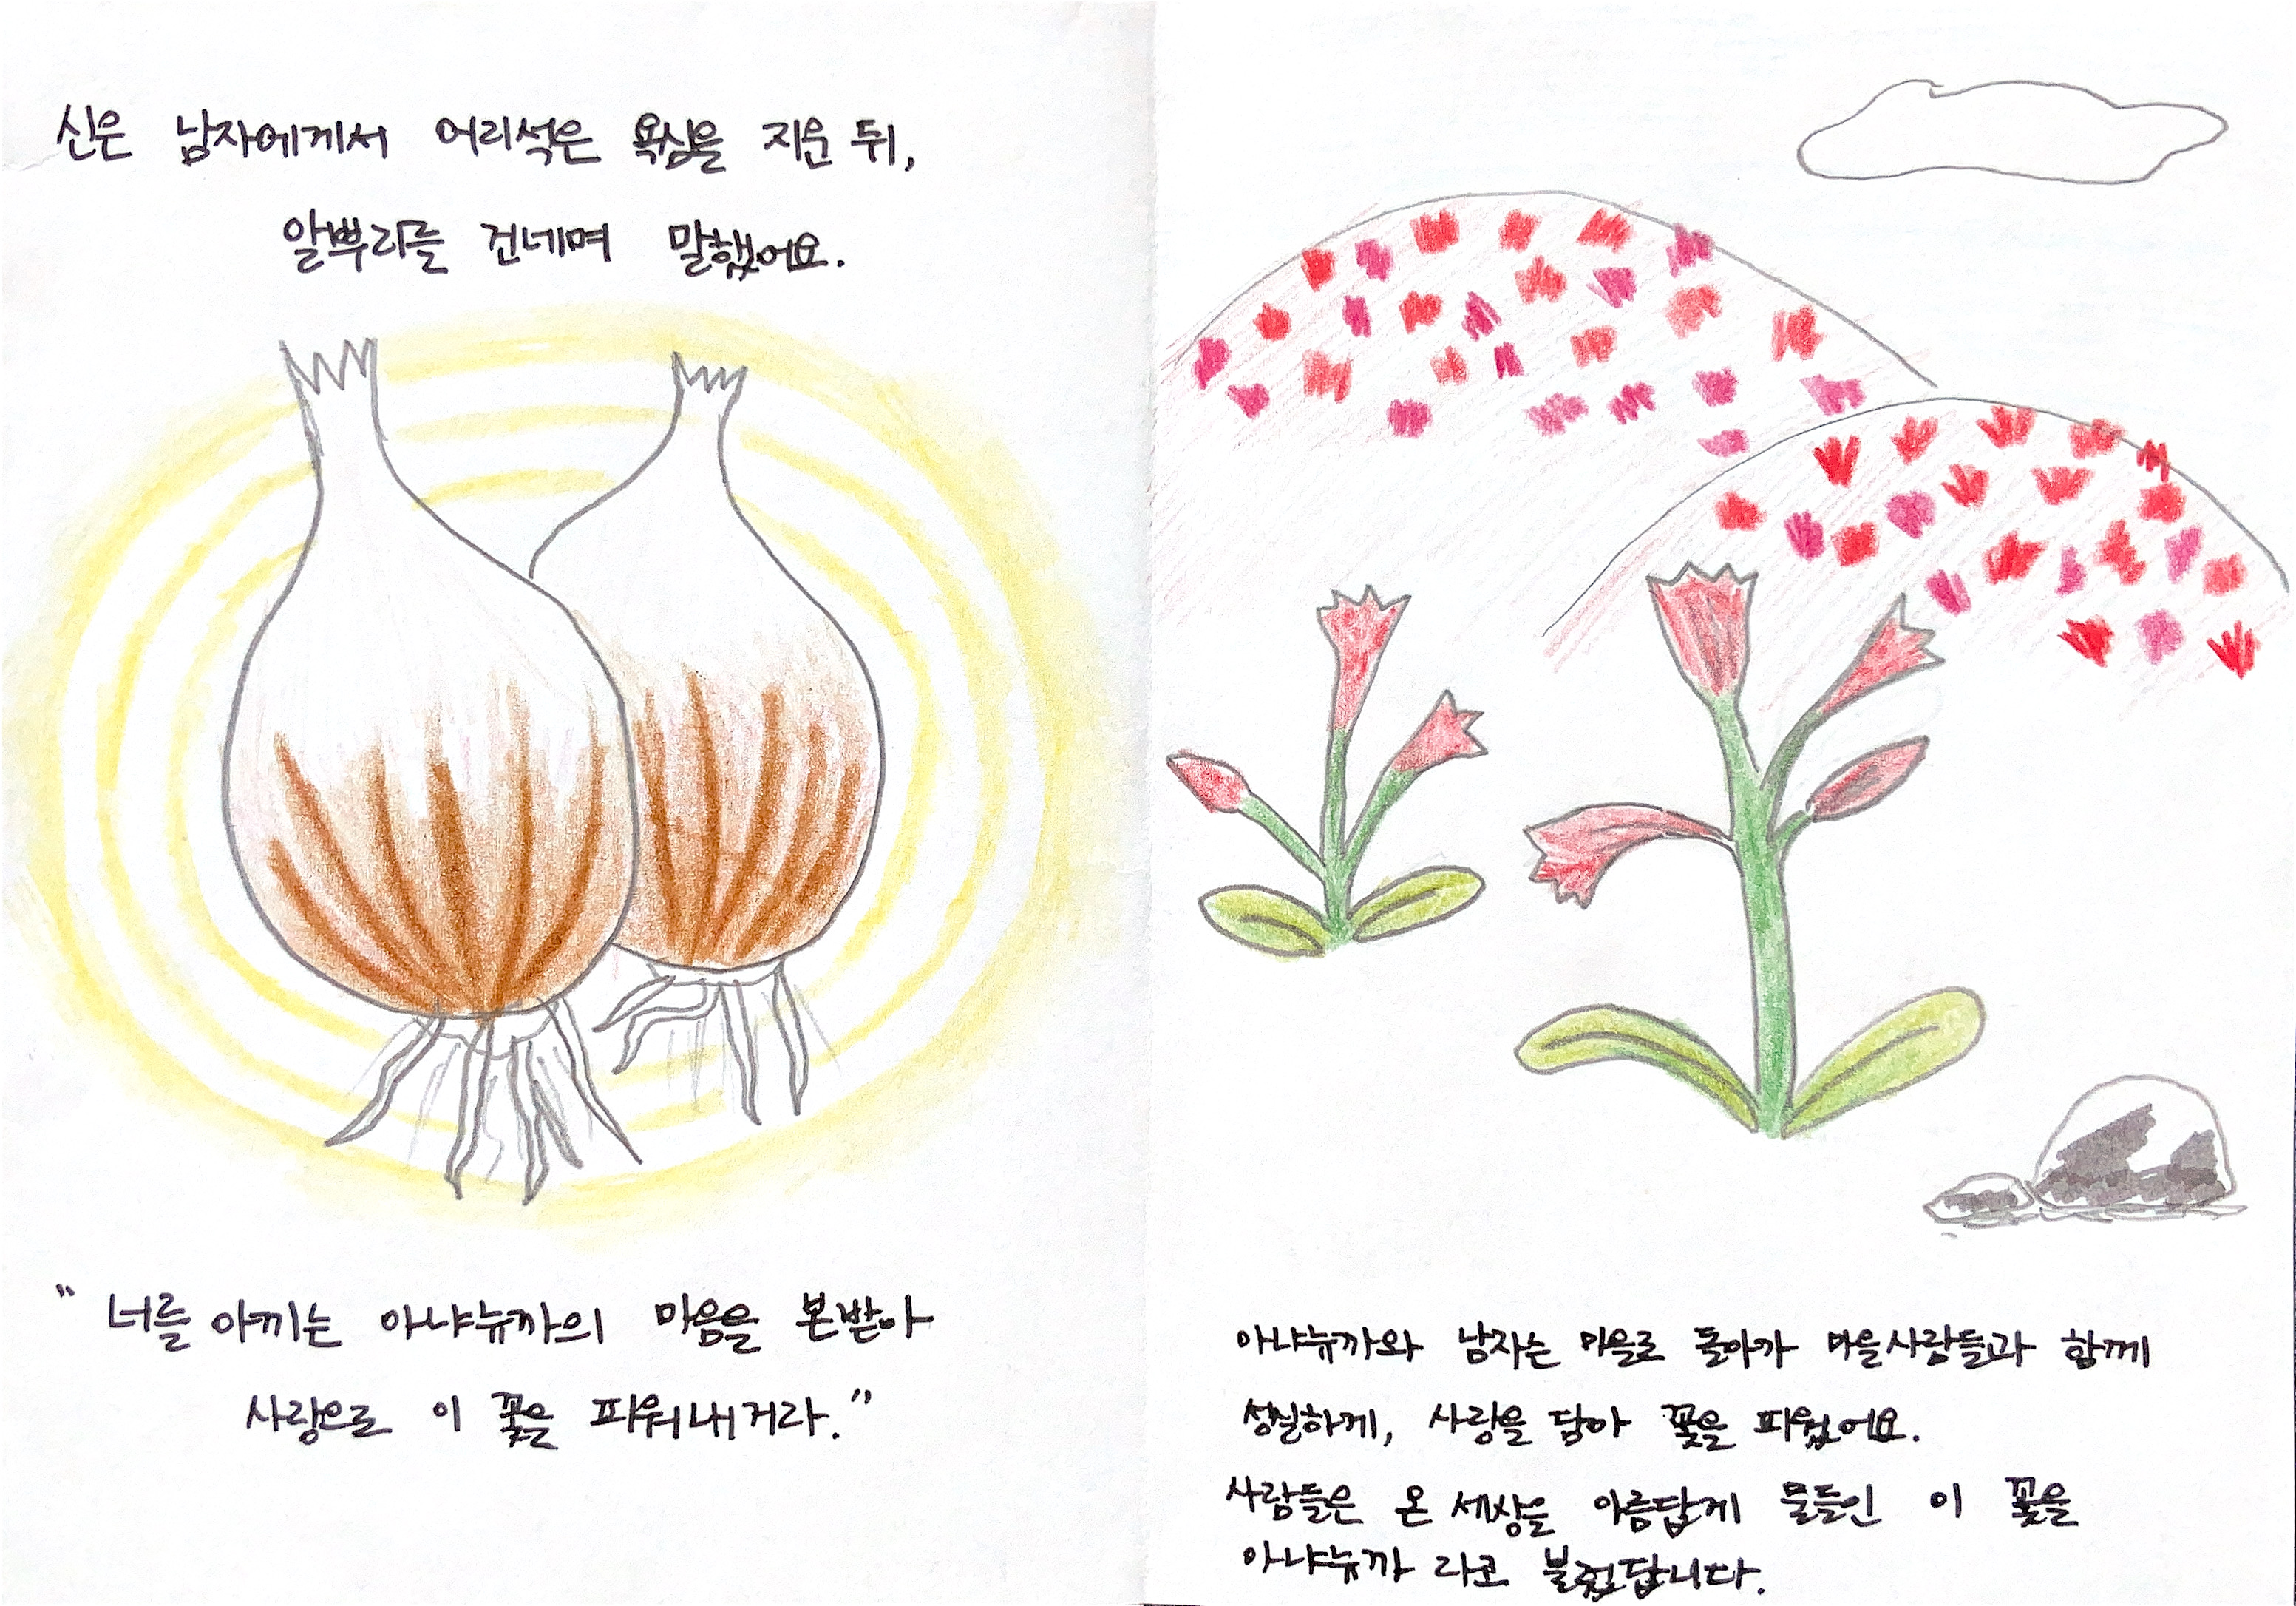 신은 남자에게서 어리석은 욕심을 지운 뒤,
알뿌리를 건네며 말했어요.
"너를 아끼는 아냐뉴까의 마음을 본받아
사랑으로 이 꽃을 피워내거라."
아냐뉴까와 남자는 마을로 돌아가 마을사람들과 함께
성실하게, 사랑을 담아 꽃을 피웠어요.
사람들은 온 세상을 아름답게 물들인 이 꽃을
아냐뉴까 라고 불렀답니다.